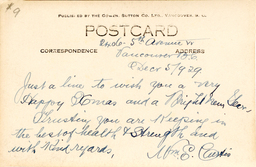 PUBLISHED BY THE GOWEN SUTTON CO. LTD., VANCOUVER, B.C.
POSTCARD
CORRESPONDENCE
ADDRESS
5th Avenue W
Vancouver B.C.
Dec 5/1929
Just a line to wish you a very
Happy Xmas and a Bright New Year,
Trusting you are keeping in
the best of health & strength and
with kind regards,
Wm E. Curtis